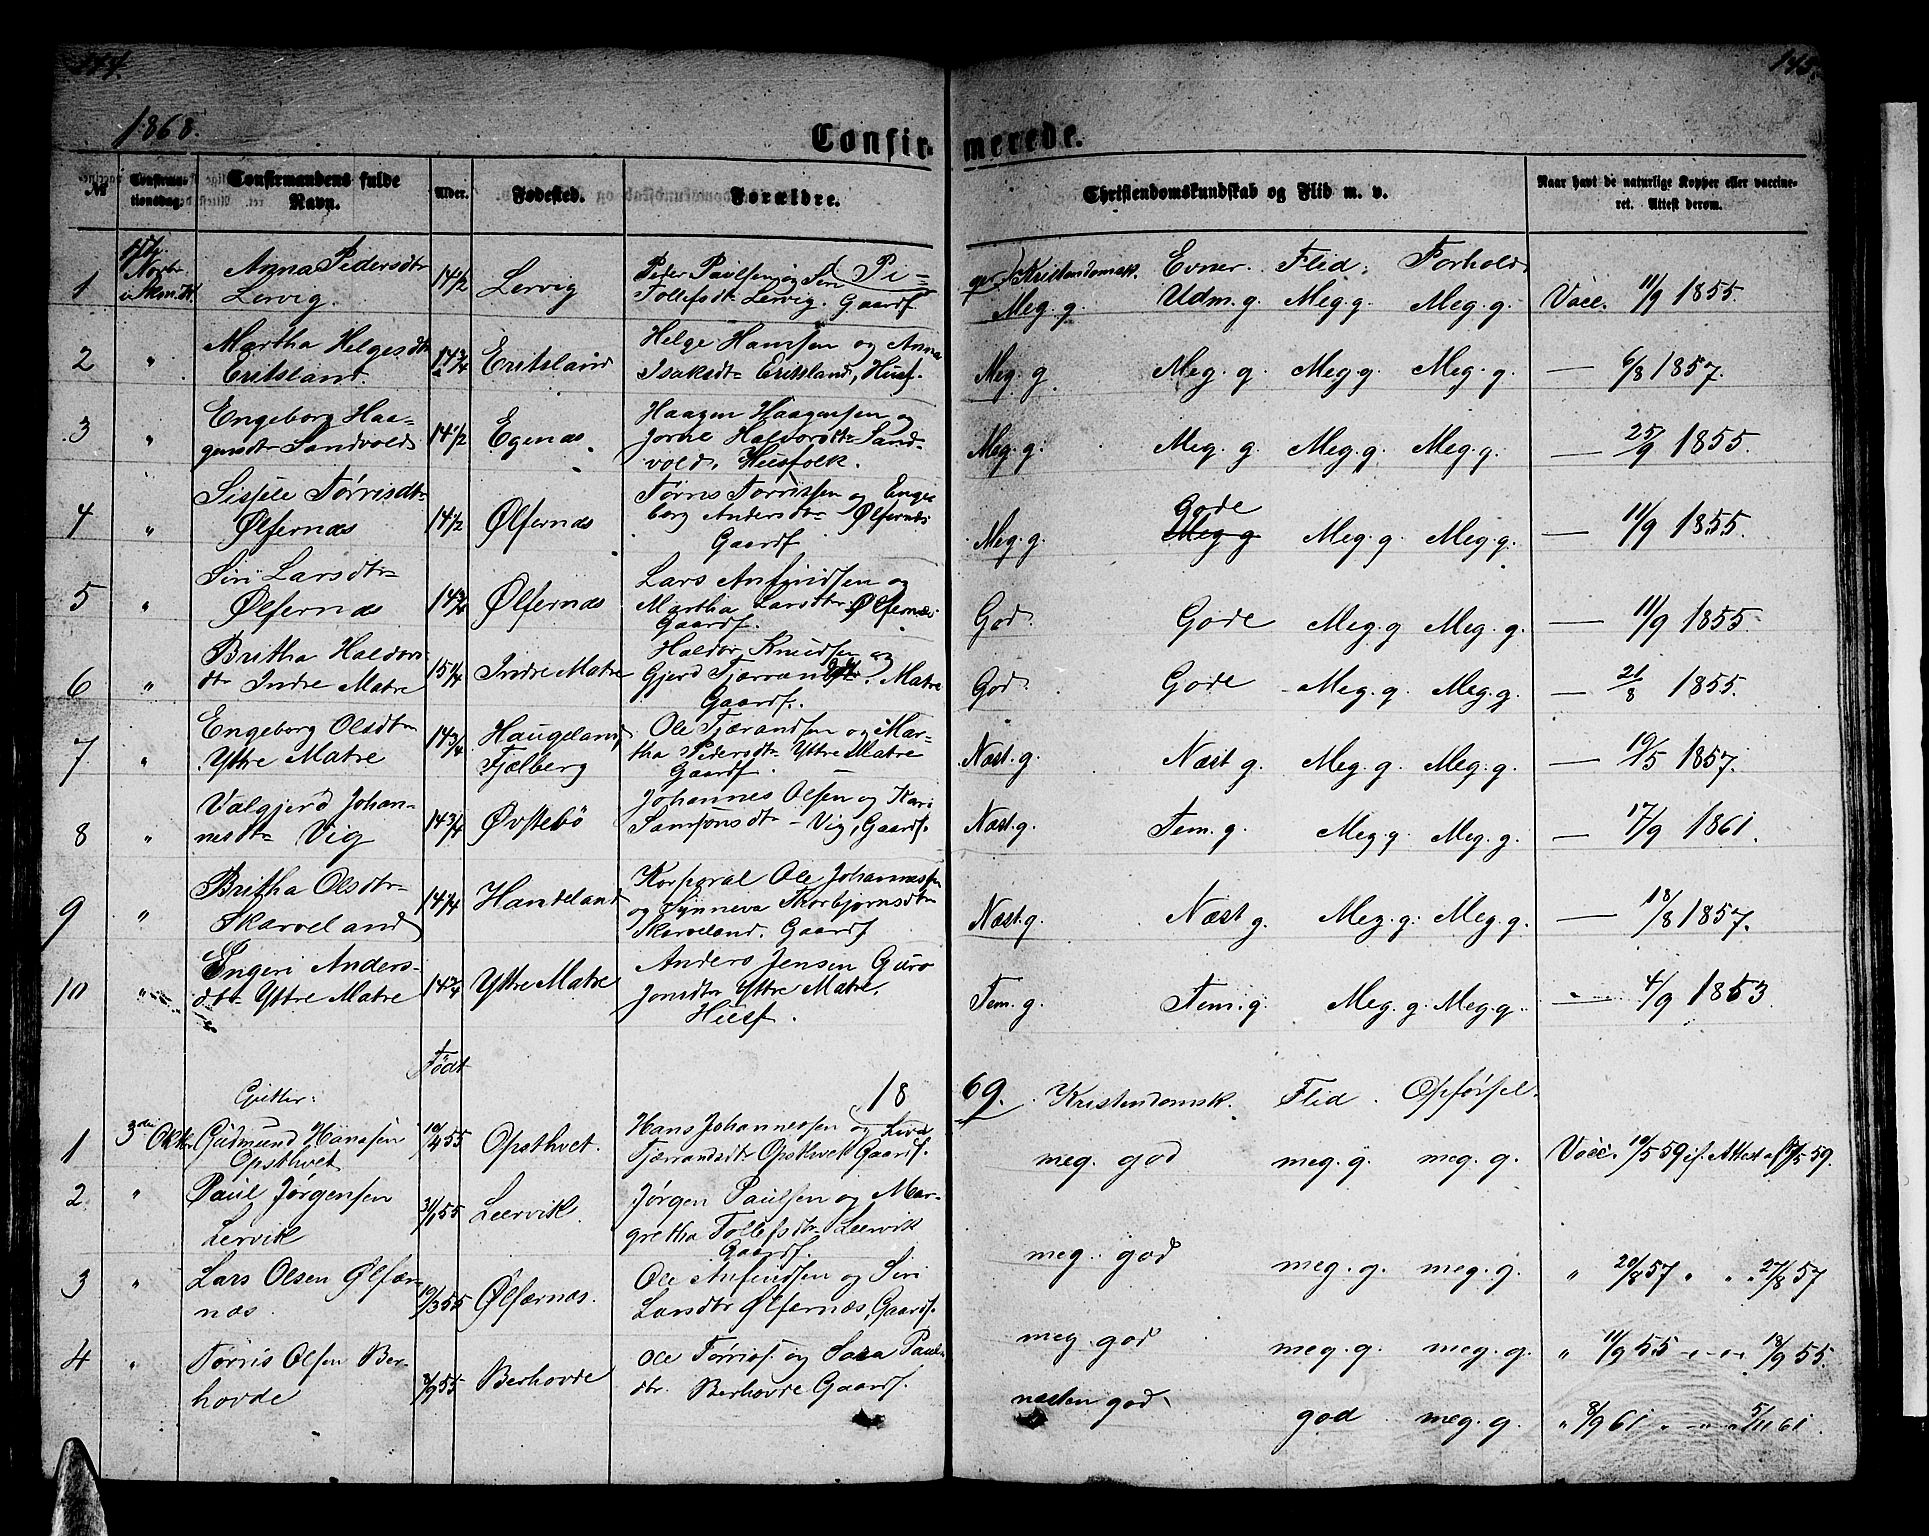 144.
145.
1868.
Confir-
merede.
№
Confirma-
tionsdag.
Confirmandens fulde
Navn.
Alder.
Fødested.
Forældre.
Christendomskundskab og Flid m. v.
Naar havt de naturlige Kopper eller vaccine-
ret. Attest derom.
Pi=
ger
Kristendomsk. Evner. Flid. Forhold.
1
Anna Pedersdtr
Lervig.
14 1/2
Lervig
Peder Paulsen og Siri
Tollefsdtr Lervig. Gaardf.
Meg. g. Udm. g. Meg g. Meg. g. Vacc. 11/9 1855.
2 "
Martha Helgesdtr
Eritsland.
14 3/4
Eritsland
Helge Hanssen og Anna
Isaksdtr Eritsland, Husf.
Meg. g. Meg. g. Meg g. Meg. g. — 6/8 1857.
3 "
Engeborg Haa-
gensdtr Sandvold
14 1/2
Egenæs.
Haagen Haagensen og
Jorhe Halvorsdtr Sand-
vold, Husfolk.
Meg. g. Meg. g. Meg. g. Meg. g. — 25/9 1855.
4 "
Sissele Tørrisdtr
Ølfernæs
14 1/2
Ølfernæs
Tørris Tørrissen og Enge
borg Andersdtr Ølfernæs
Gaardf.
Gode
Meg. g. Meg g Meg. g. Meg. g. — 11/9 1855.
5 "
Siri Larsdtr
Ølfernæs
14 3/4
Ølfernæs
Lars Anfindsen og
Martha Larsdtr Ølfernæs
Gaardf.
God Gode Meg. g Meg. g. — 11/9 1855.
6 "
Britha Haldors
dtr Indre Matre
15 1/4
Indre Matre
Haldor Knudsen og
Gjerd Tjærandsdtr I. Matre
Gaardf.
God. Gode Meg. g. Meg. g. — 21/8 1855.
7 "
Engeborg Olsdtr
Yttre Matre
14 3/4
Haugeland,
Fjælberg
Ole Tjærandsen og Mar-
tha Pedersdtr Yttre Matre
Gaardf.
Næst. g. Næst g. Meg. g. Meg. g. — 19/5 1857.
8 "
Valgjerd Johan-
nesdtr Vig
14 3/4
Øvstebö
Johannes Olsen og Kari
Samsonsdtr - Vig, Gaardf.
Næst. g. Tem. g. Meg g Meg. g. — 17/9 1861.
9 "
Britha Olsdtr
Skarveland
14 1/4
Handeland
Korporal Ole Johannessen
og Synneva Thorbjørnsdtr
Skarveland. Gaardf.
Næst. g. Næst g. Meg. g. Meg. g. — 18/8 1857.
10 "
Engeri Anders-
dtr Yttre Matre
14 3/4
Yttre Matre
Anders Jensen Guro
Jonsdtr Yttre Matre,
Husf.
Tem. g. Tem. g. Meg. g. Meg. g. — 4/9 1853.
Født
Gutter:
18
69. Kristendomsk. Flid. Opførsel.
1 3die Oktbr
Gudmund Hanssen
Opsthvet
10/4 55
Opsthvet.
Hans Johannessen og Siri
Tjærrandsdtr Opsthvet Gaardf.
meg. god meg. g. meg. g. Vacc. 10/5 59 if. Attest af 17/5 59.
2. "
Paul Jørgensen
Lervik
31/1 55
Leervik.
Jørgen Paulsen og Mar-
gretha Tollefsdtr Leervik
Gaardf.
meg. god meg. g. meg. g. " 20/8 57 " " 27/8 57
3 "
Lars Olsen Ølfær-
næs.
19/3 55
Ølfærnæs.
Ole Anfindsen og Siri
Larsdtr Ølfernæs, Gaardf.
meg. god meg. g. meg. g. " 11/9 55 " " 18/9 55.
4 "
Tørris Olsen Ber-
hovde
9/9 55
Berhovde
Ole Tørris. og Sara Pauls-
dtr. Berhovde Gaardf.
næsten god god meg. g. " 8/9 61 " " 5/11 61